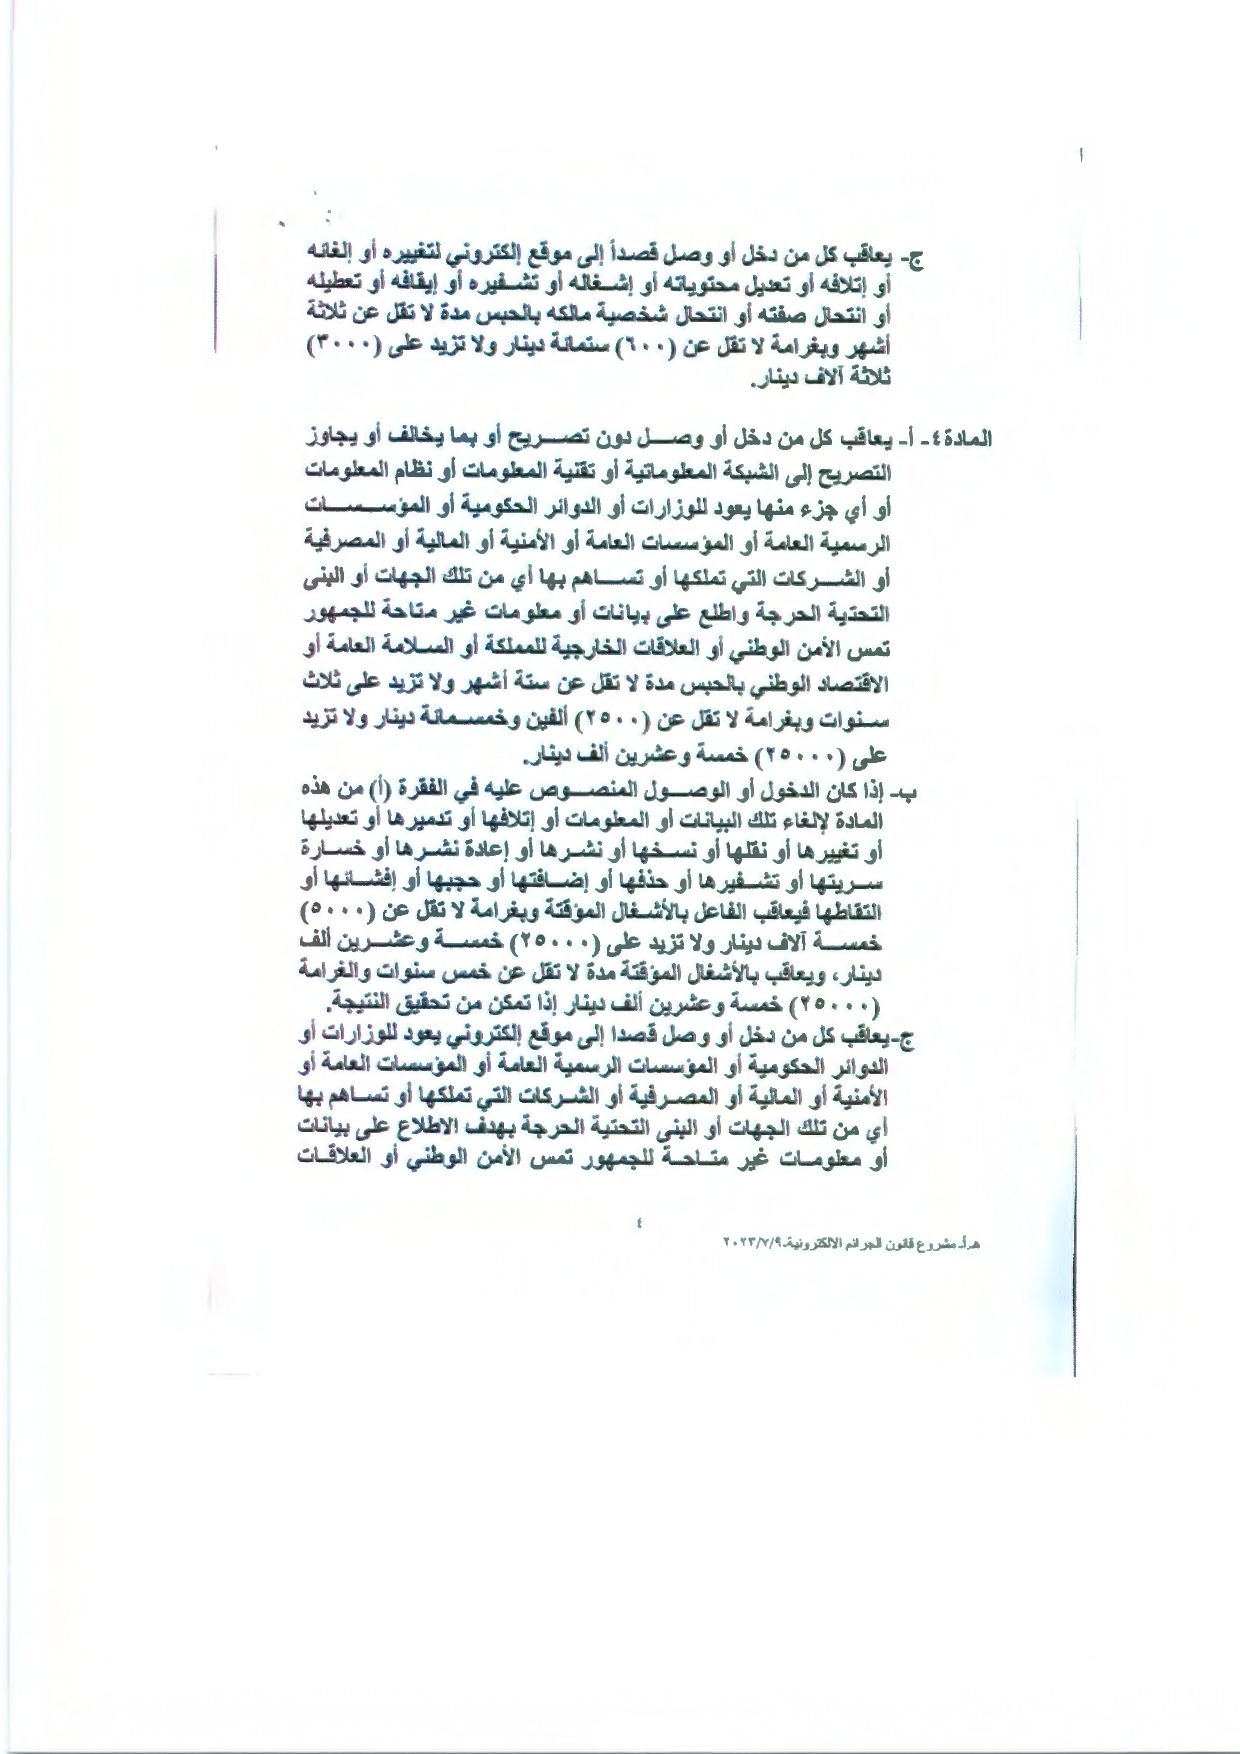 ج- يعاقب كل من دخل أو وصل قصداً إلى موقع إلكتروني لتغييره أو إلغائه
أو إتلافه أو تعديل محتوياته أو إشغاله أو تشفيره أو إيقافه أو تعطيله
أو انتحال صفته أو انتحال شخصية مالكه بالحبس مدة لا تقل عن ثلاثة
أشهر وبغرامة لا تقل عن (٦٠٠) ستمائة دينار ولا تزيد على (٣٠٠٠)
ثلاثة آلاف دينار.
المادة ٤- أ- يعاقب كل من دخل أو وصل دون تصريح أو بما يخالف أو يجاوز
التصريح إلى الشبكة المعلوماتية أو تقنية المعلومات أو نظام المعلومات
أو أي جزء منها يعود للوزارات أو الدوائر الحكومية أو المؤسسات
الرسمية العامة أو المؤسسات العامة أو الأمنية أو المالية أو المصرفية
أو الشركات التي تملكها أو تساهم بها أي من تلك الجهات أو البنى
التحتية الحرجة واطلع على بيانات أو معلومات غير متاحة للجمهور
تمس الأمن الوطني أو العلاقات الخارجية للمملكة أو السلامة العامة أو
الاقتصاد الوطني بالحبس مدة لا تقل عن ستة أشهر ولا تزيد على ثلاث
سنوات وبغرامة لا تقل عن (٢٥٠٠) ألفين وخمسمائة دينار ولا تزيد
على (٢٥٠٠٠) خمسة وعشرين ألف دينار.
ب- إذا كان الدخول أو الوصول المنصوص عليه في الفقرة (أ) من هذه
المادة لإلغاء تلك البيانات أو المعلومات أو إتلافها أو تدميرها أو تعديلها
أو تغييرها أو نقلها أو نسخها أو نشرها أو إعادة نشرها أو خسارة
سريتها أو تشفيرها أو حذفها أو إضافتها أو حجبها أو إفشائها أو
التقاطها فيعاقب الفاعل بالأشغال المؤقتة وبغرامة لا تقل عن (٥٠٠٠)
خمسة آلاف دينار ولا تزيد على (٢٥٠٠٠) خمسة وعشرين ألف
دينار، ويعاقب بالأشغال المؤقتة مدة لا تقل عن خمس سنوات والغرامة
(٢٥٠٠٠) خمسة وعشرين ألف دينار إذا تمكن من تحقيق النتيجة.
ج-يعاقب كل من دخل أو وصل قصدا إلى موقع إلكتروني يعود للوزارات أو
الدوائر الحكومية أو المؤسسات الرسمية العامة أو المؤسسات العامة أو
الأمنية أو المالية أو المصرفية أو الشركات التي تملكها أو تساهم بها
أي من تلك الجهات أو البنى التحتية الحرجة بهدف الاطلاع على بيانات
أو معلومات غير متاحة للجمهور تمس الأمن الوطني أو العلاقات
٤
هـ.أ- مشروع قانون الجرائم الالكترونية-٢٠٢٣/٧/٩